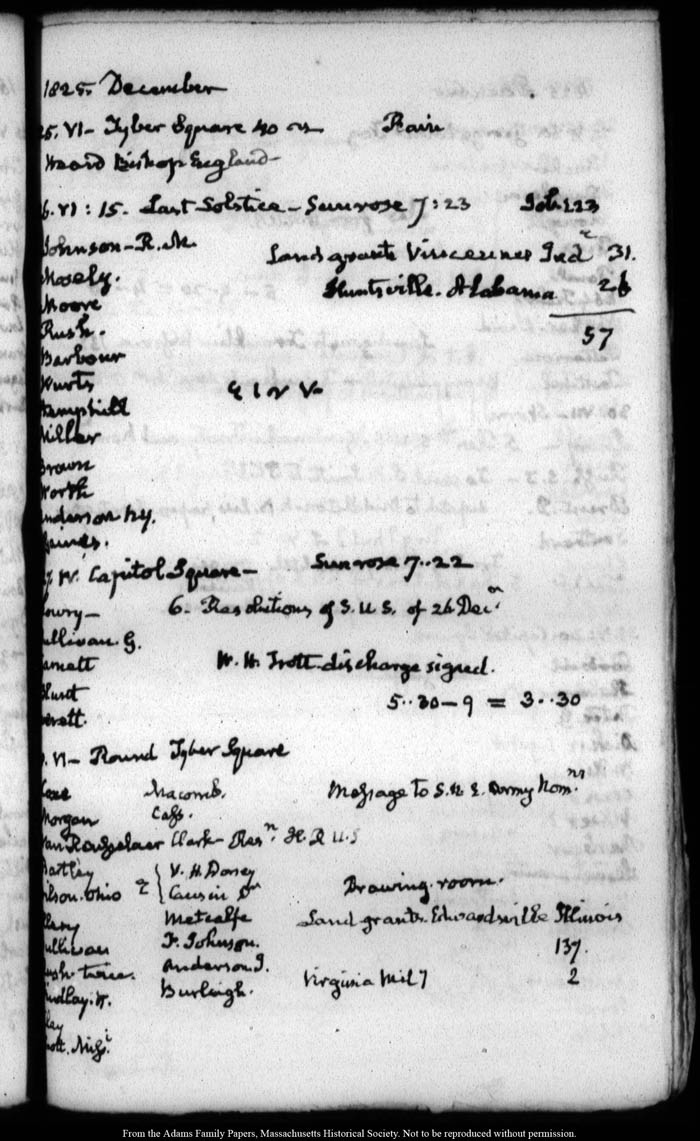 1825. December
25. VI - Tyber Square 40 m Rain
Heard Bishop England -
26. VI : 15. Last Solstice - Sunrose 7:23 Job. 123
Johnson - R. M. Land grants Vincennes Indᵃ 31.
Mosely. Huntsville. Alabama 26
Moore
Rush. 57
Barbour
Kurtz
Hemphill
Miller
Brown
North
Anderson Ky.
IV. Capitol Square - Sunrose 7..22
Lowry - 6. Resolutions of S.U.S. of 26 Decʳ.
Sullivan. G.
Barnett W. H. Trott - discharge signed.
5..30 - 9 = 3..30
VI - Round Tyber Square
Macomb. Message to S.U.S. Army Nomⁿˢ
Morgan Cass.
Van Rensselaer Clark - Resⁿ. H. R U.S
Bartley V. H. Dorsey
Wilson. Ohio & Causin Dr Drawing room.
Metcalfe Land grants. Edwardsville Illinois
Sullivan F. Johnson. 137.
Rush twice. Anderson J. Virginia Mil 7 2
Findlay. W. Burleigh.
Scott. Missⁱ
From the Adams Family Papers, Massachusetts Historical Society. Not to be reproduced without permission.